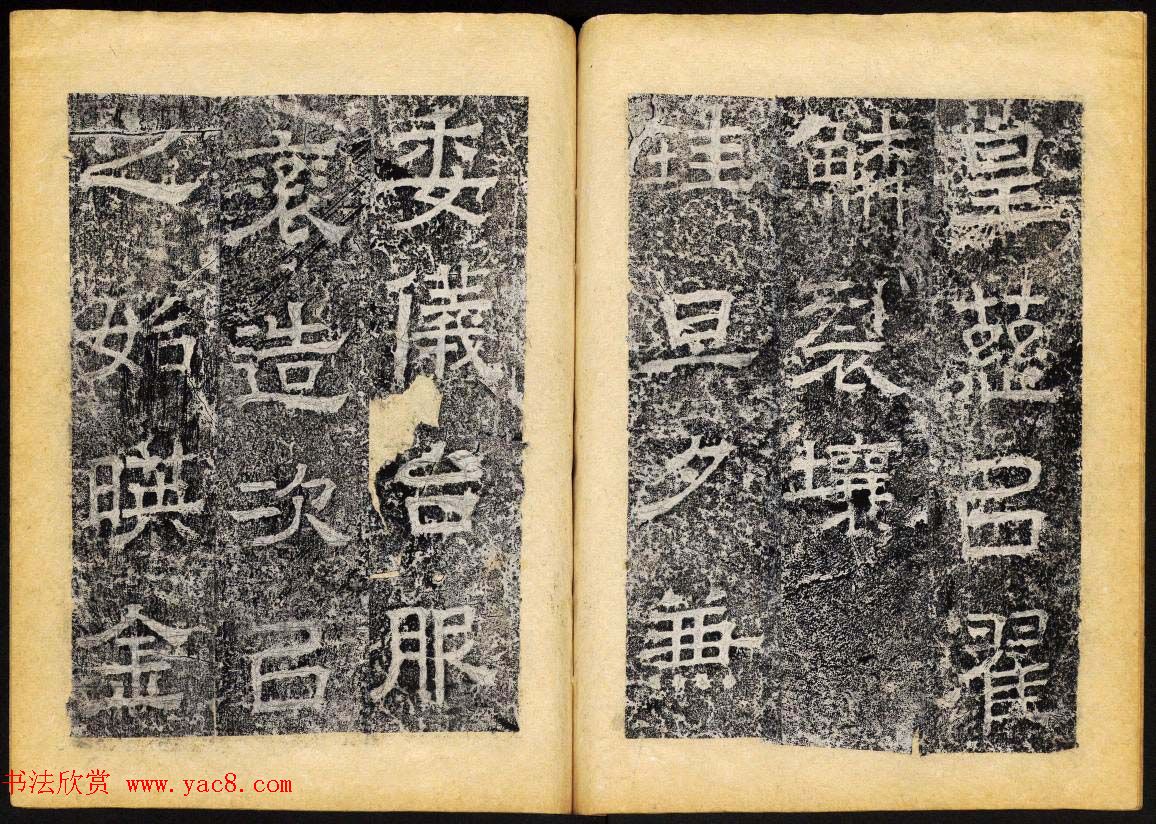 皇㠯翟
裂壤
珪旦夕兼
委儀台服
袞造次㠯
之始暎金
书法欣赏 www.yac8.com